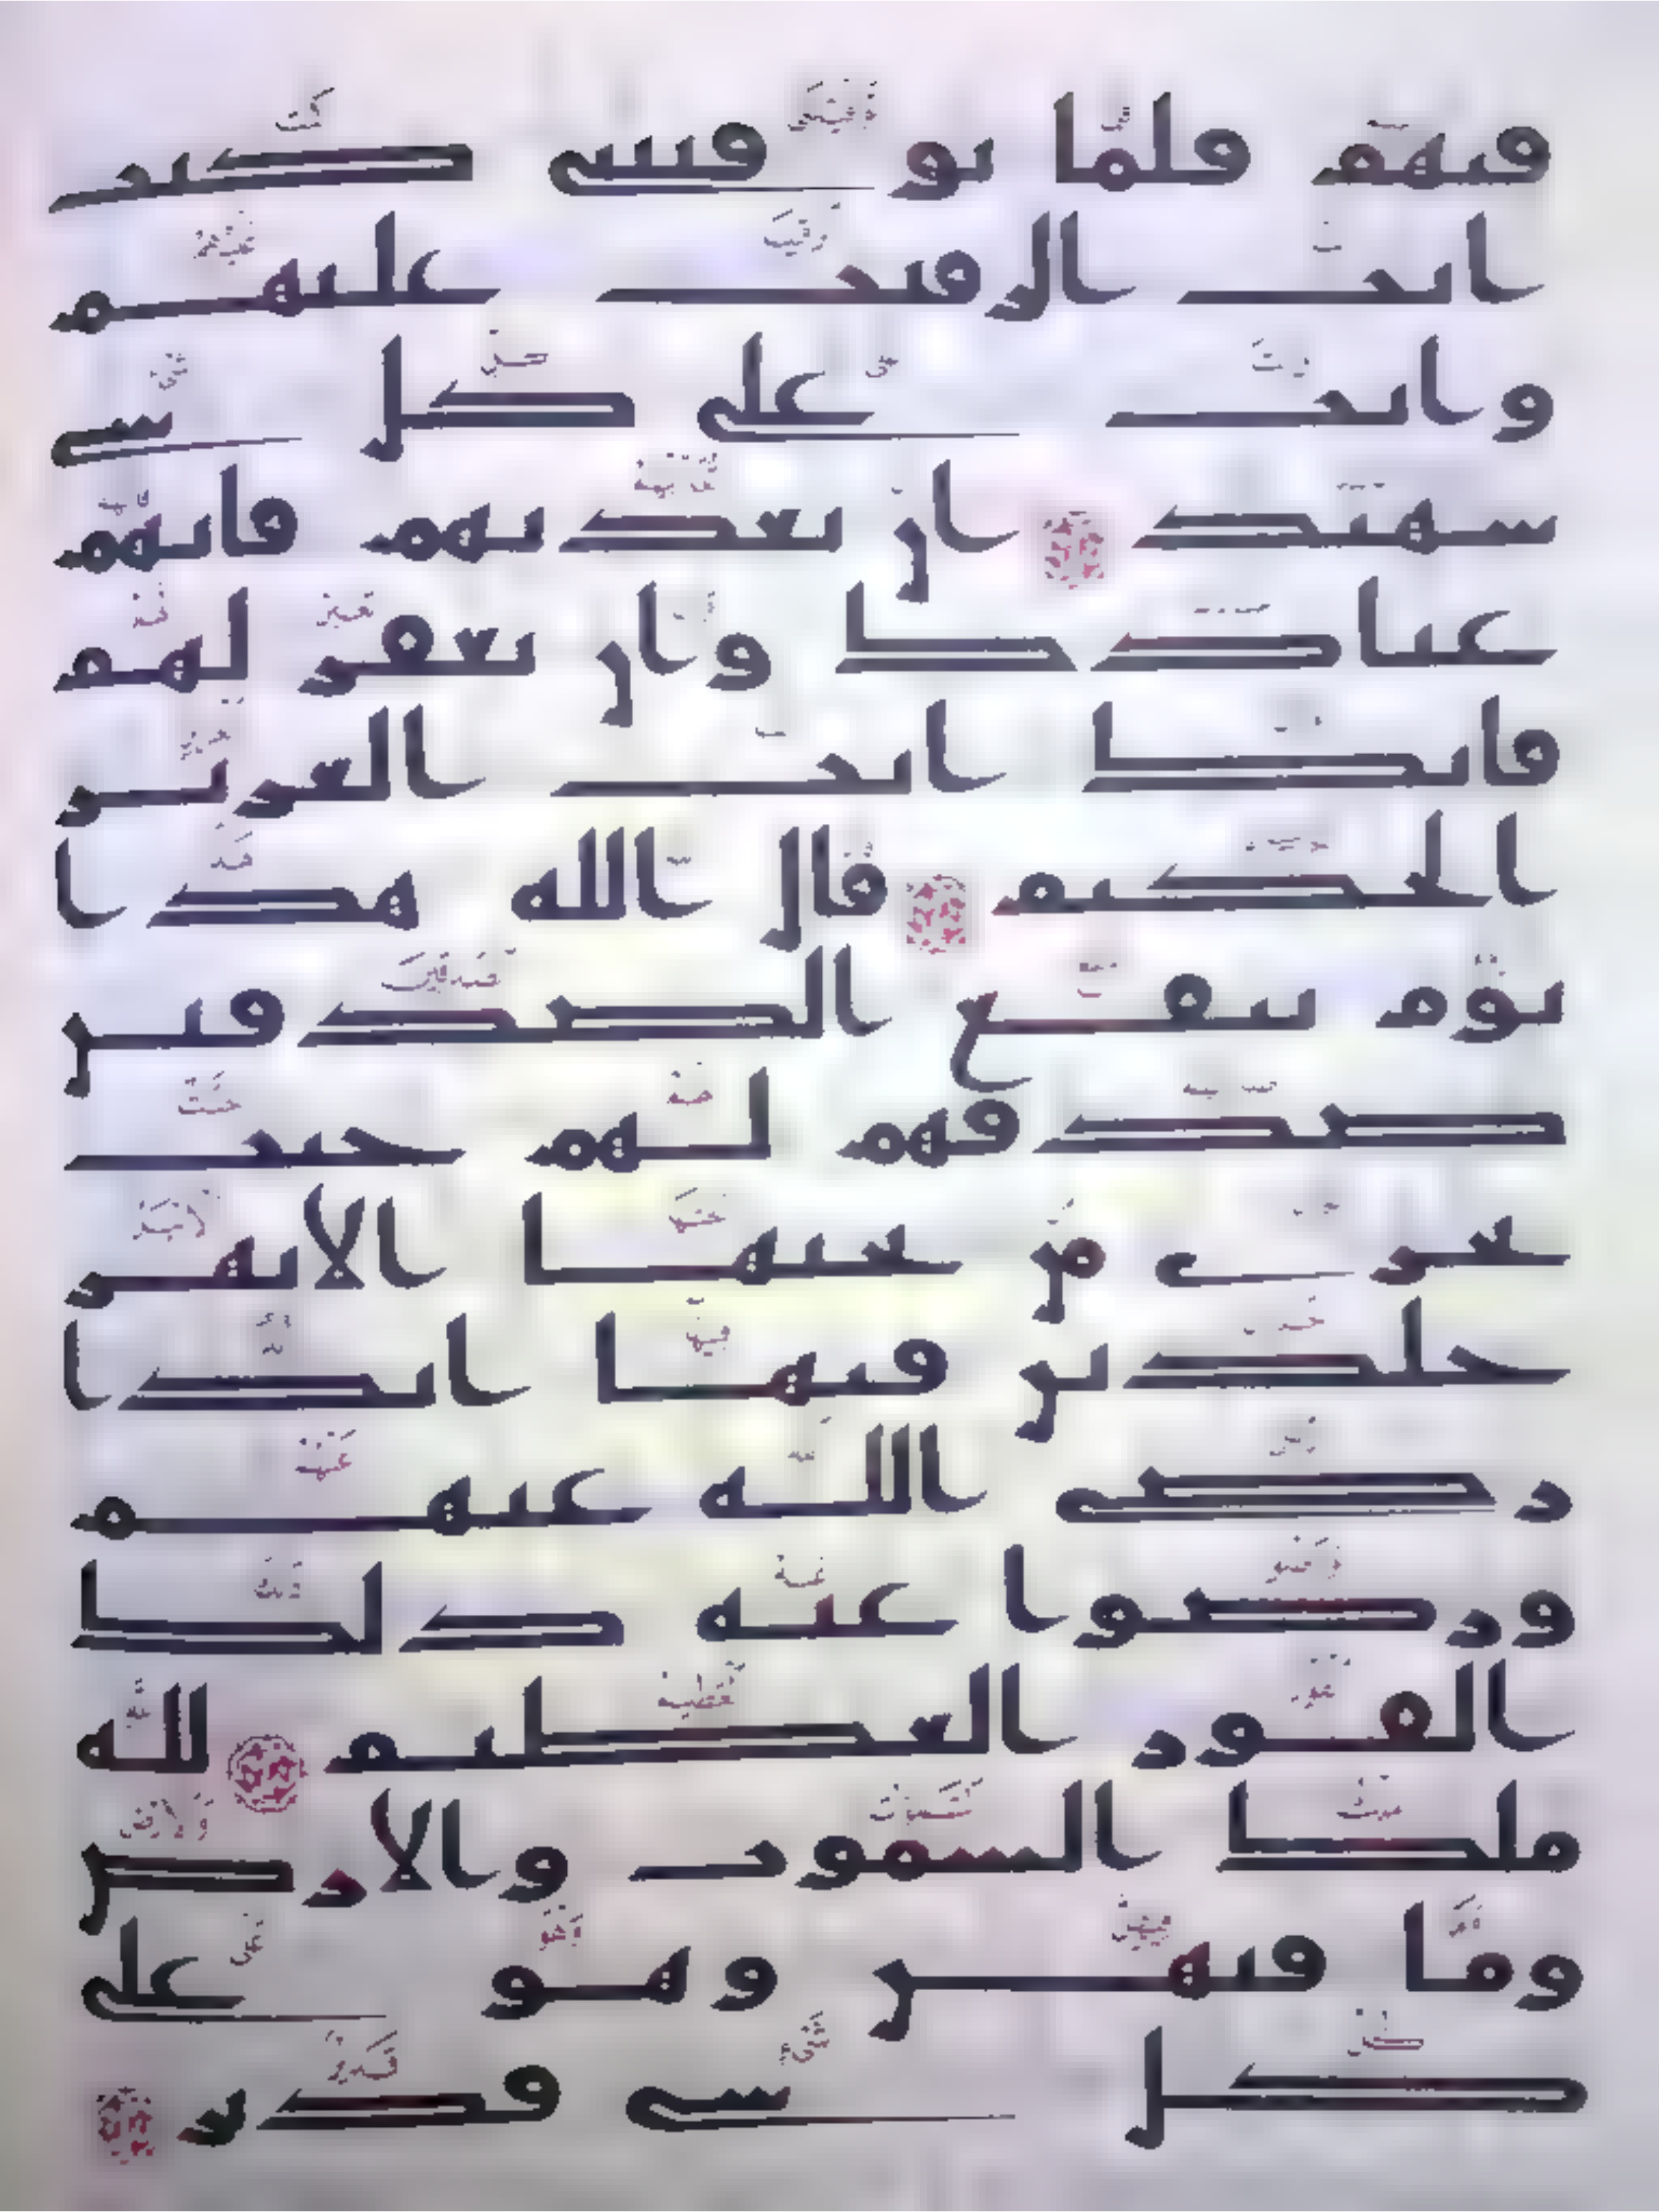 فيهم فلما توفيتني كنت
انت الرقيب عليهم
وانت على كل شي
شهيد ان تعذبهم فانهم
عبادك وان تغفر لهم
فانك انت العزيز
الحكيم قال الله هذا
يوم ينفع الصدقين
صدقهم لهم جنت
تجري من تحتها الانهر
خلدين فيها ابدا
رضي الله عنهم
ورضوا عنه ذلك
الفوز العظيم لله
ملك السموت والارض
وما فيهن وهو على
كل شي قدير